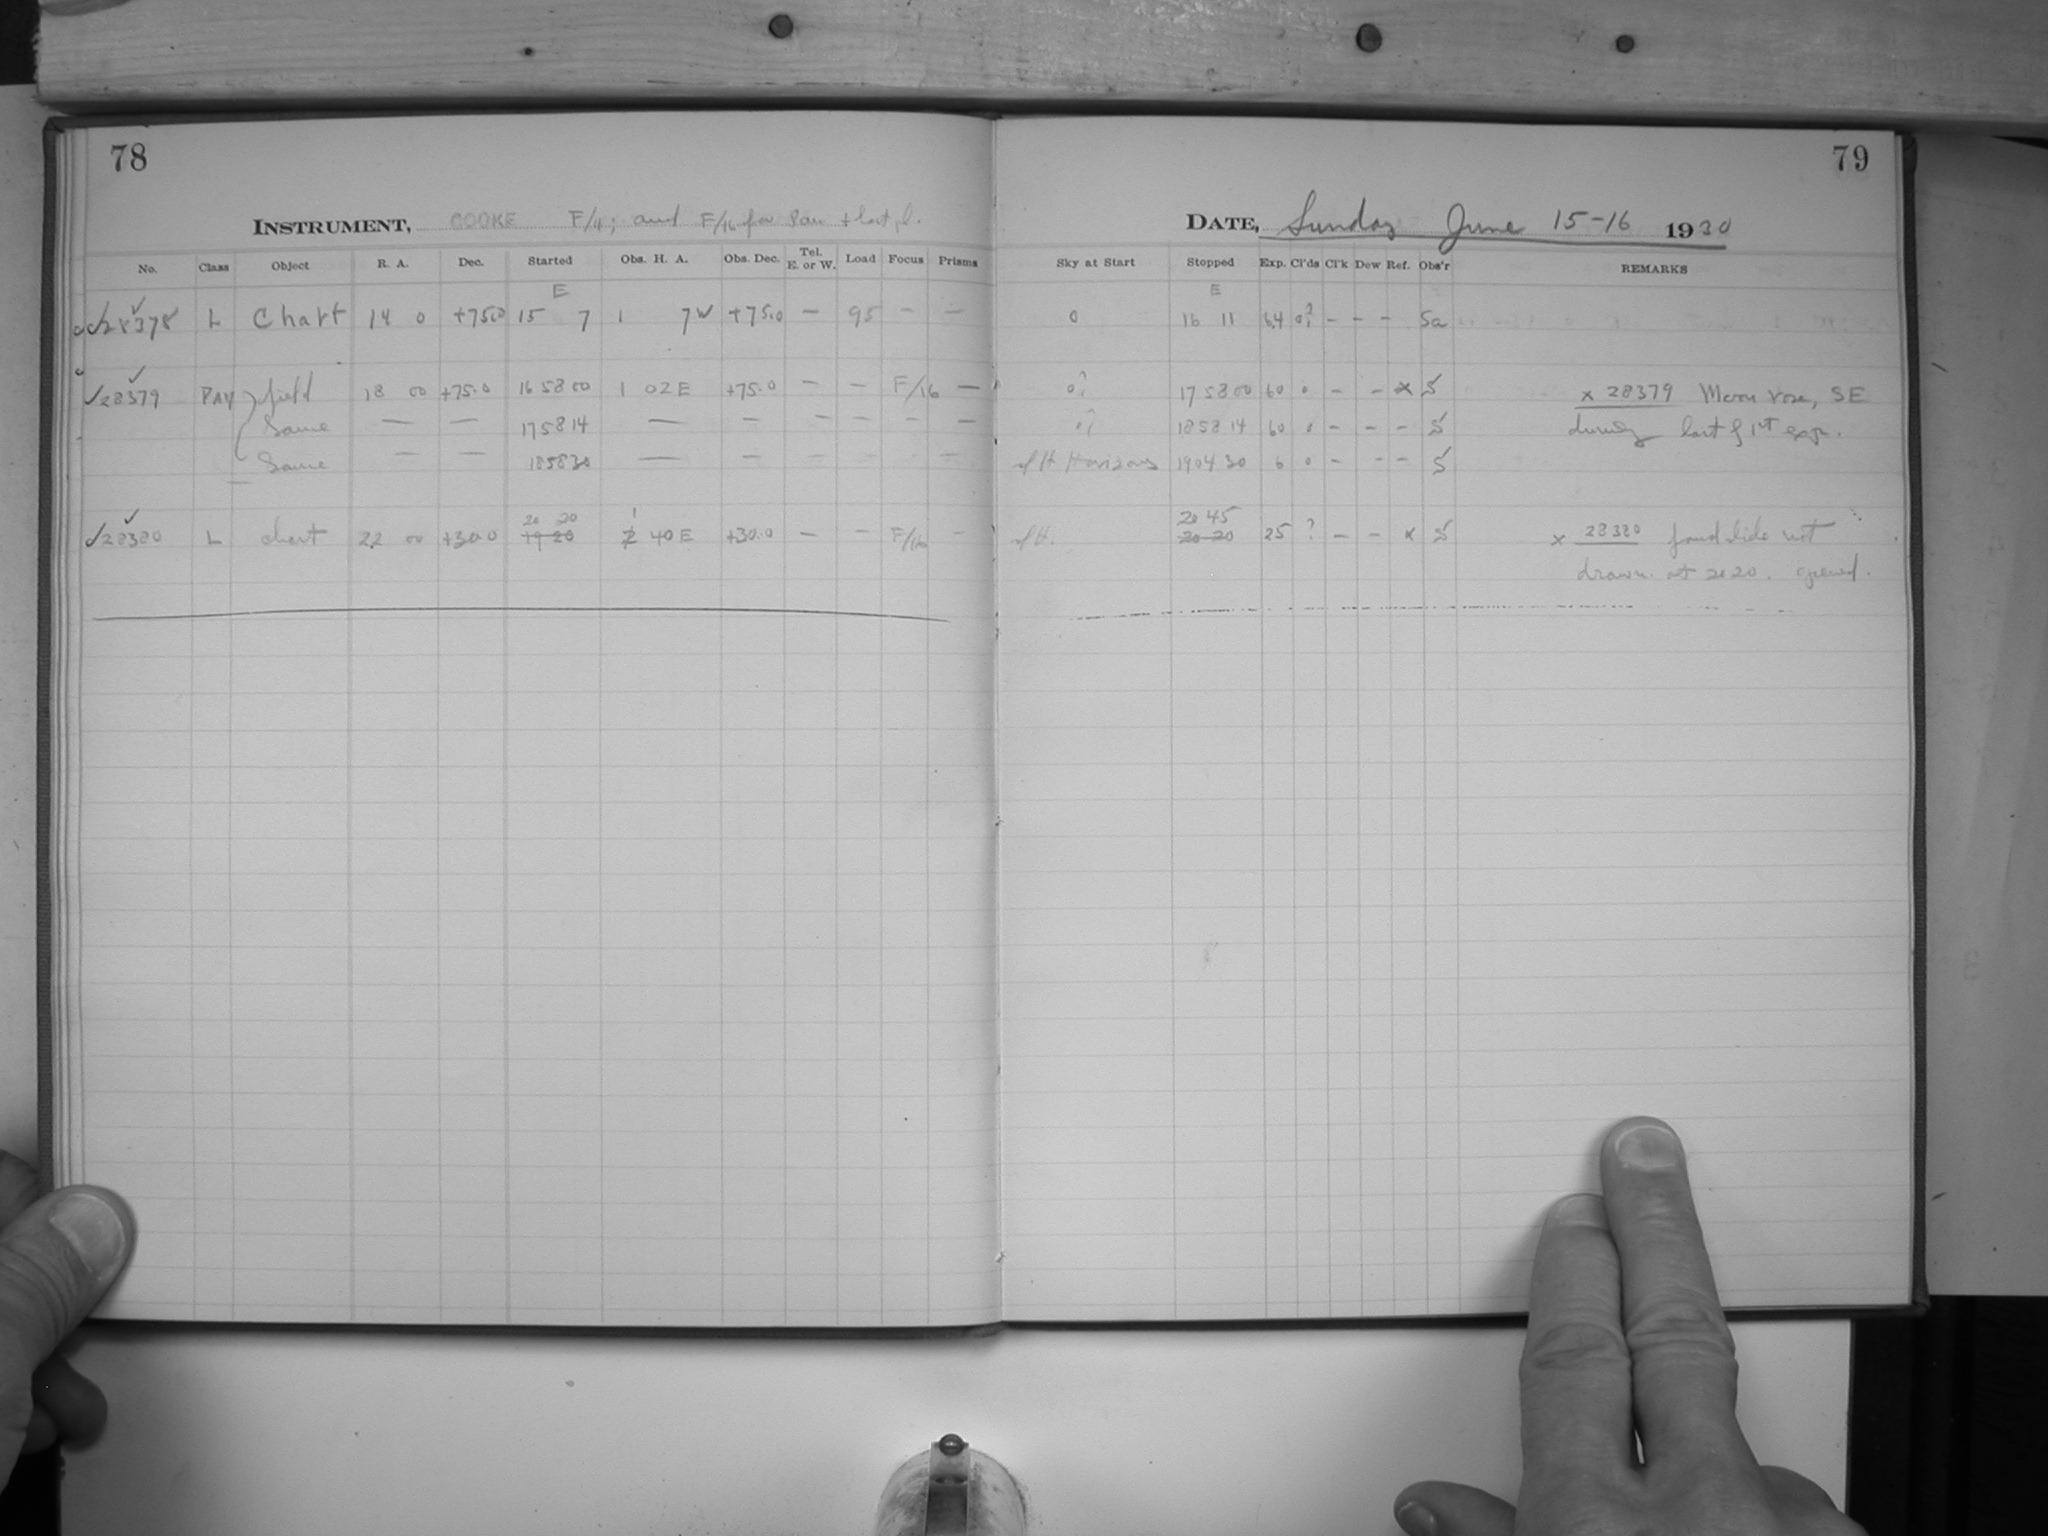 78
INSTRUMENT, COOKE F/4; and F/16 for Pay + last pl.
No. Class Object R. A. Dec. Started Obs. H. A. Obs. Dec. Tel. E. or W. Load Focus Prisms
E
28378 L Chart 14 0 +75.0 15 7 1 7 W +75.0 — 95 — —
28379 PAY field 18 00 +75.0 16 58 00 1 02 E +75.0 — — F/16 —
Same — — 17 58 14 — — — — — —
Same — — 18 58 30 — — — — — —
20 20 1
28380 L chart 22 00 +30.0 19 20 2 40 E +30.0 — — F/16 —
79
DATE, Sunday June 15-16 1930
Sky at Start Stopped Exp. Cl'ds Cl'k Dew Ref. Obs'r REMARKS
E
0 16 11 64 0? - - - Sa
0? 17 58 00 60 0 - - x S x 28379 Moon rose, SE
18 58 14 60 0 - - - S during last of 1st exp.
Horizons 19 04 30 6 0 - - - S
20 45
20 20 25 ? - - x S x 28380 found slide not
drawn at 20 20. opened.